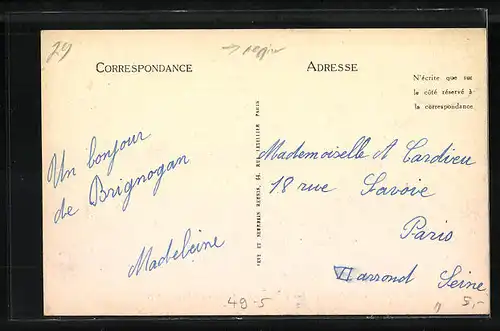 29
CORRESPONDANCE
ADRESSE
N'écrite que sur
le côté réservé à
la correspondance
Un bonjour
de Brignogan
Madeleine
Mademoiselle A Cardieu
18 rue Savoie
Paris
VI arrond Seine
49-5
5,-